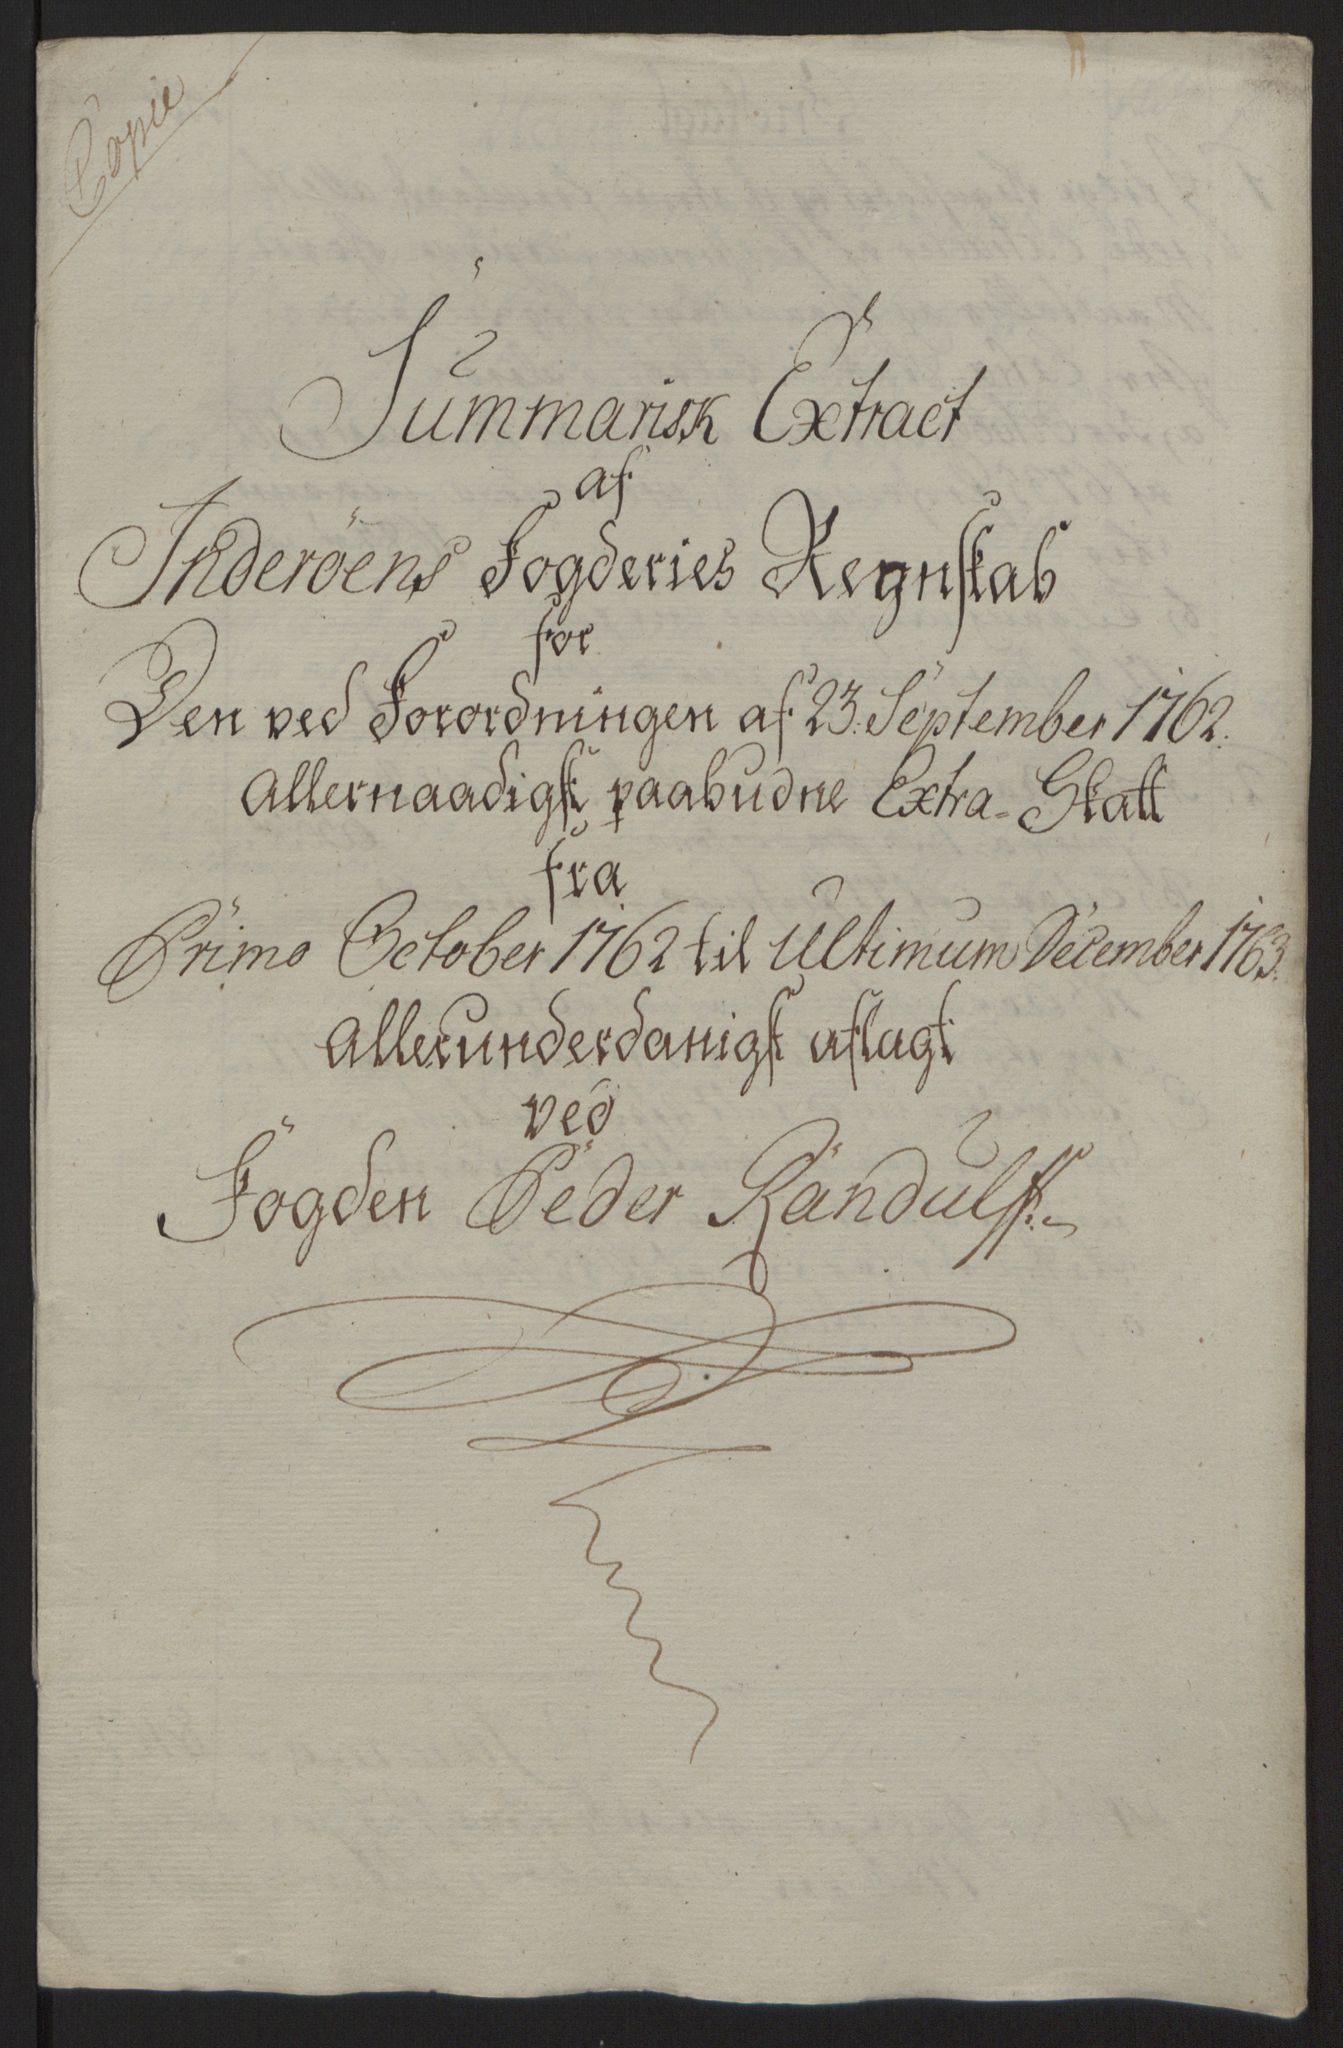 Copie
Summarisk Extract
af
Inderöens Fogderies Regnskab
for
Den ved Forordningen af 23. September 1762.
allernaadigst paabudne Extra-Skatt
fra
Primo October 1762 til Ultimum December 1763.
allerunderdanigst aflagt
ved
Fogden Peder Randulff.